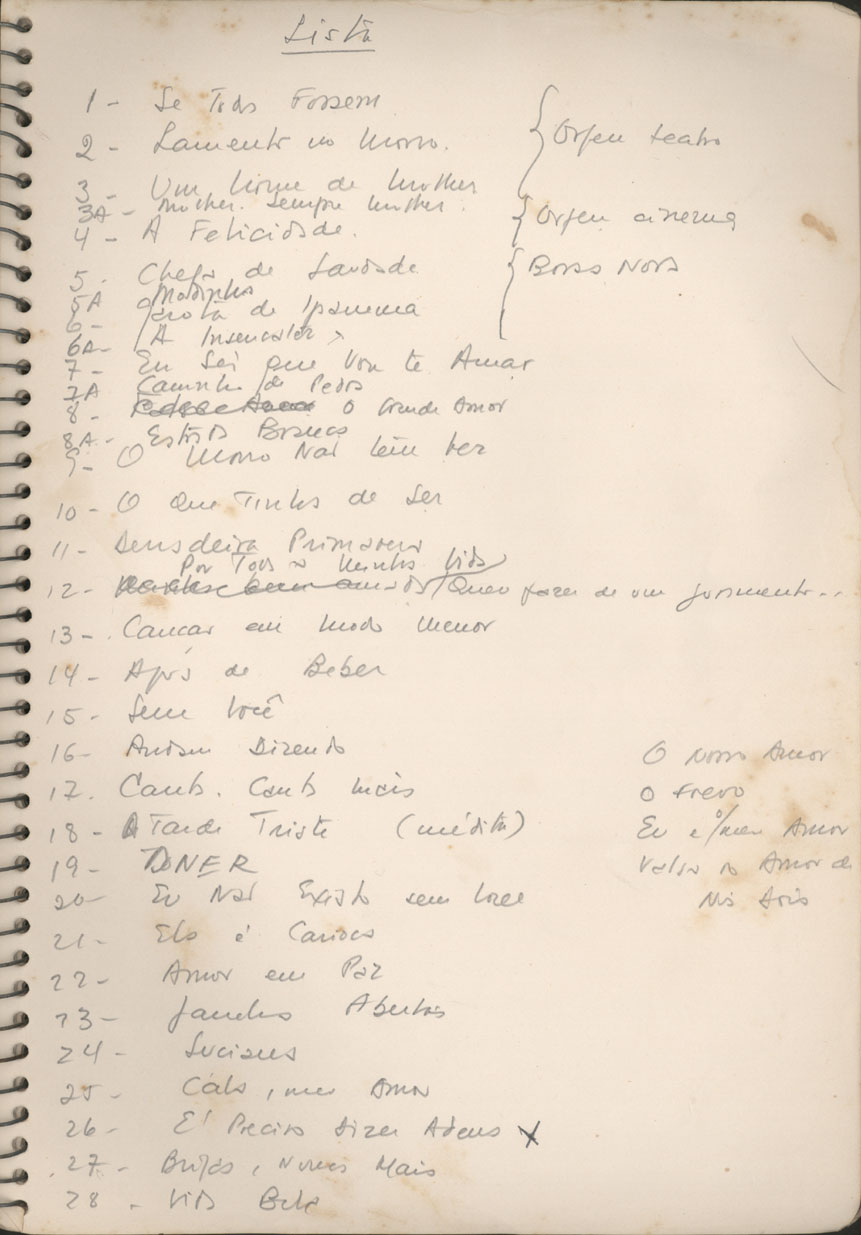 Lista
1 - Se Todos Fossem
2 - Lamento no Morro.
{ Orfeu teatro
3 - Um Nome de Mulher
3A - Mulher. sempre mulher.
{ Orfeu cinema
4 - A Felicidade.
5. Chega de Saudade
{ Bossa Nova
5A Modinha
6 - Garota de Ipanema
6A - A Insensatez
7 - Eu Sei que Vou te Amar
7A Caminho de Pedra
8 - O Grande Amor
8A - Estrada Branca
9 - O Morro Não tem vez
10 - O Que Tinha de Ser
11 - Derradeira Primavera
Por Toda a Minha Vida
12 - Quero fazer de um juramento...
13 - Canção em modo menor
14 - Após de Beber
15 - Sem Você
16 - Andam Dizendo
O Nosso Amor
17. Canta. Canta mais
O Frevo
18 - A Tarde Triste (inédita)
Eu e o meu Amor
19 - TONER
Valsa do Amor de
20 - Eu Não Existo sem Você
Nós Dois
21 - Ela é Carioca
22 - Amor em Paz
23 - Janelas Abertas
24 - Luciana
25 - Cala, meu Amor
26 - É Preciso Dizer Adeus x
27 - Brigas, Nunca Mais
28 - Vida Bela